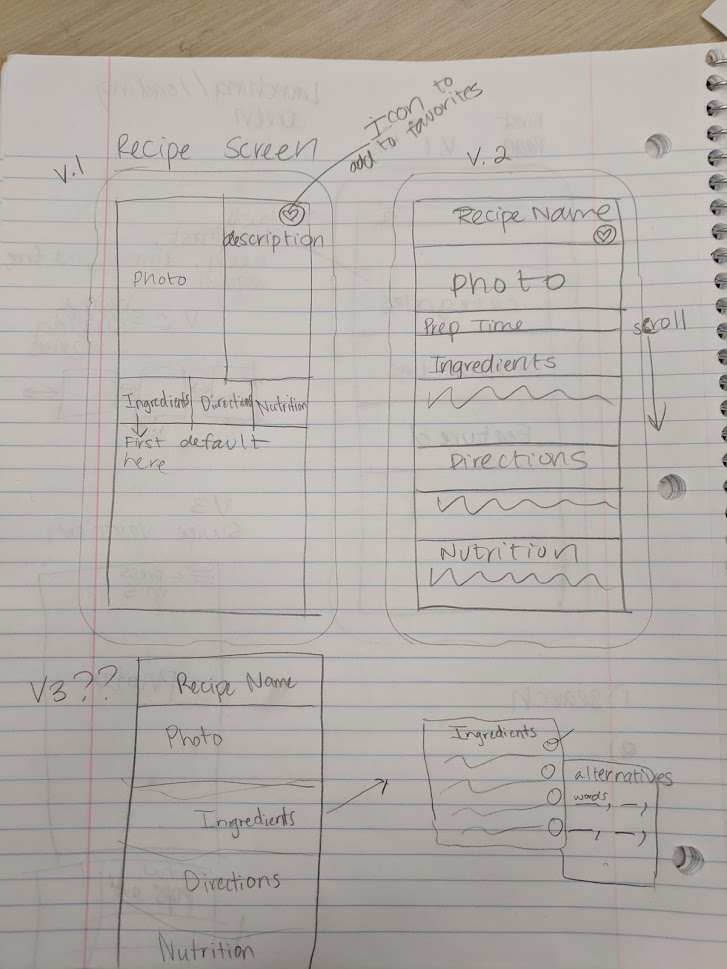 Recipe Screen
Icon to
add to favorites
V.1
description
Photo
Ingredients
Directions
Nutrition
First default
here
V.2
Recipe Name
Photo
Prep Time
scroll
Ingredients
Directions
Nutrition
V3??
Recipe Name
Photo
Ingredients
Directions
Nutrition
Ingredients
alternatives
words, —,
—, —,